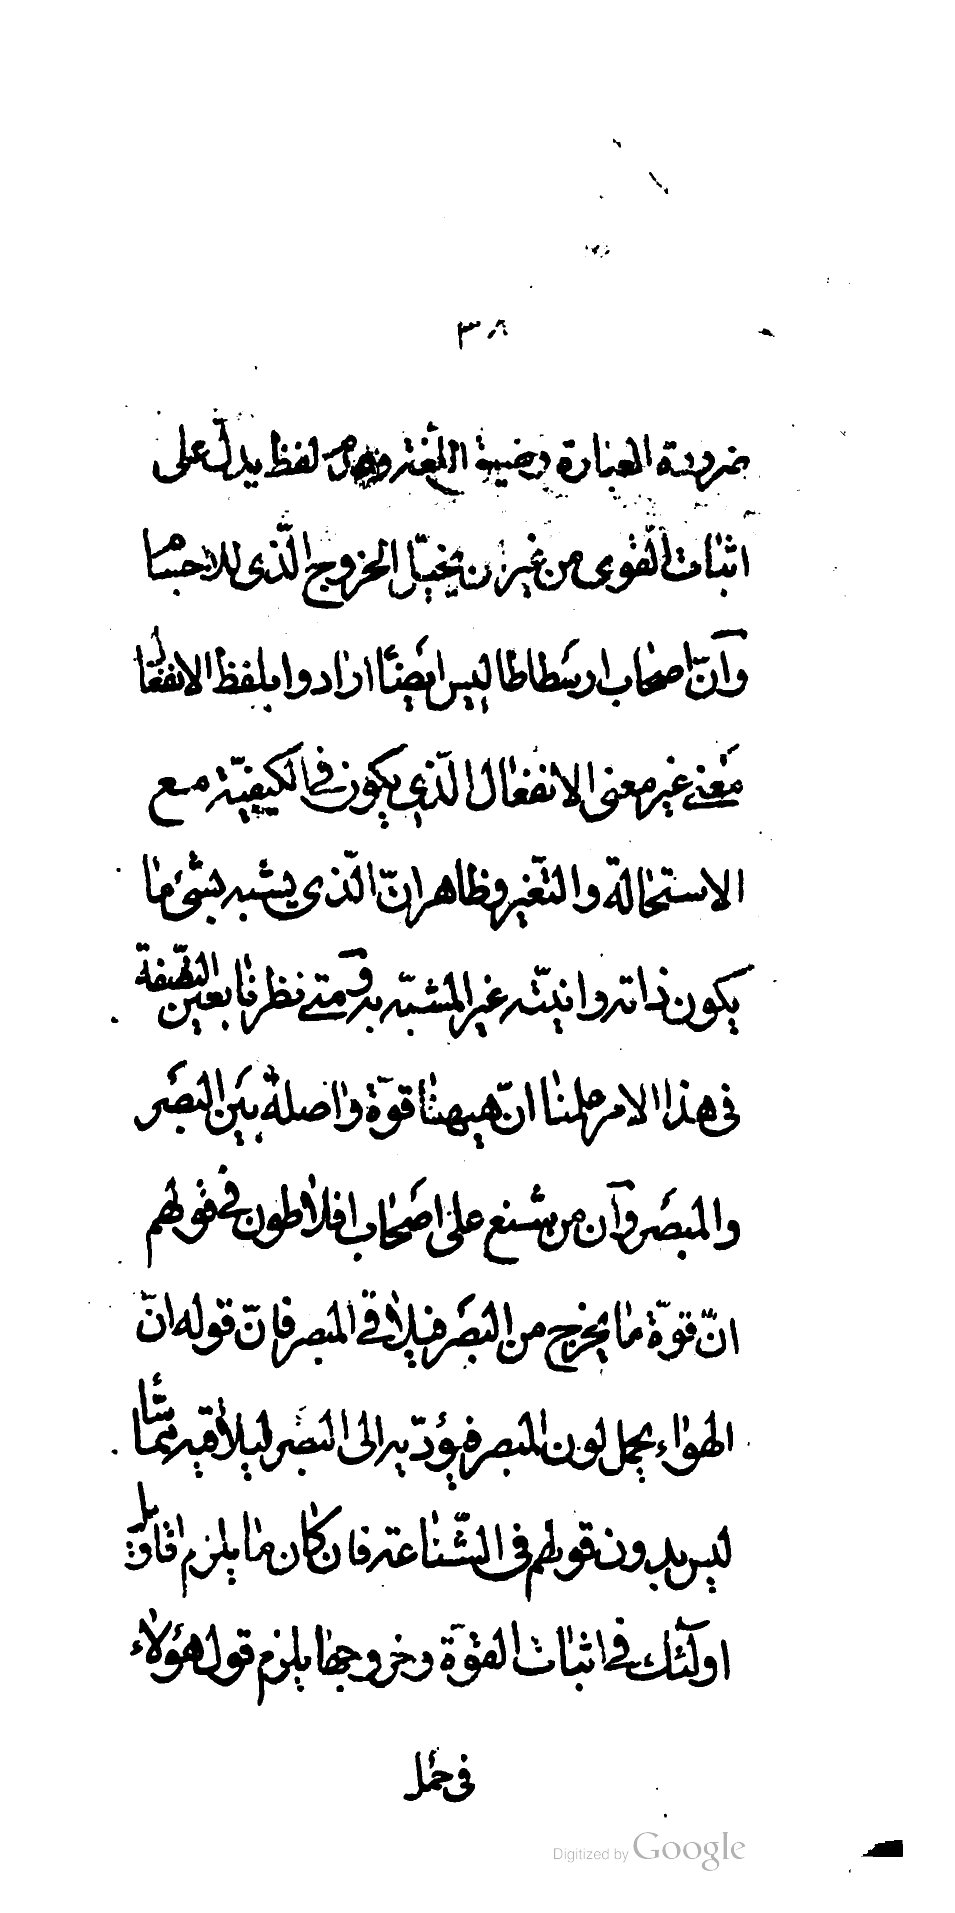 ٣٨
ضرورة العبارة وضيق اللغة وهو لفظ يدل على
اثبات القوى من غير ان يتخيّل الخروج الّذى للاجسام
وآنّ اصحاب ارسطاطاليس ايضًا ارادوا بلفظ الانفعال
معنى غير معنى الانفعال الّذي يكون في الكيفيّة مع
الاستحالة والتغيّر وظاهر انّ الّذى يشبه بشىء ما
يكون ذاته وانيّته غير المشبّه به ومتى نظرنا بعين النّصفة
فى هذا الامر علمنا انّ هيهنا قوّة واصلة بين البصر
والمبصر وآن من شنع على اصحاب افلاطون في قولهم
انّ قوّة ما يخرج من البصر فيلاقي المبصر فانّ قوله انّ
الهواء يحمل لون المبصر فيؤدّيه الى البصر ليلاقيه مماسًّا
ليس بدون قولهم فى الشّناعة فان كان ما يلزم اقاويل
اولٓئك في اثبات القوّة وخروجها يلزم قول هؤلاء
فى حمل
Digitized by Google